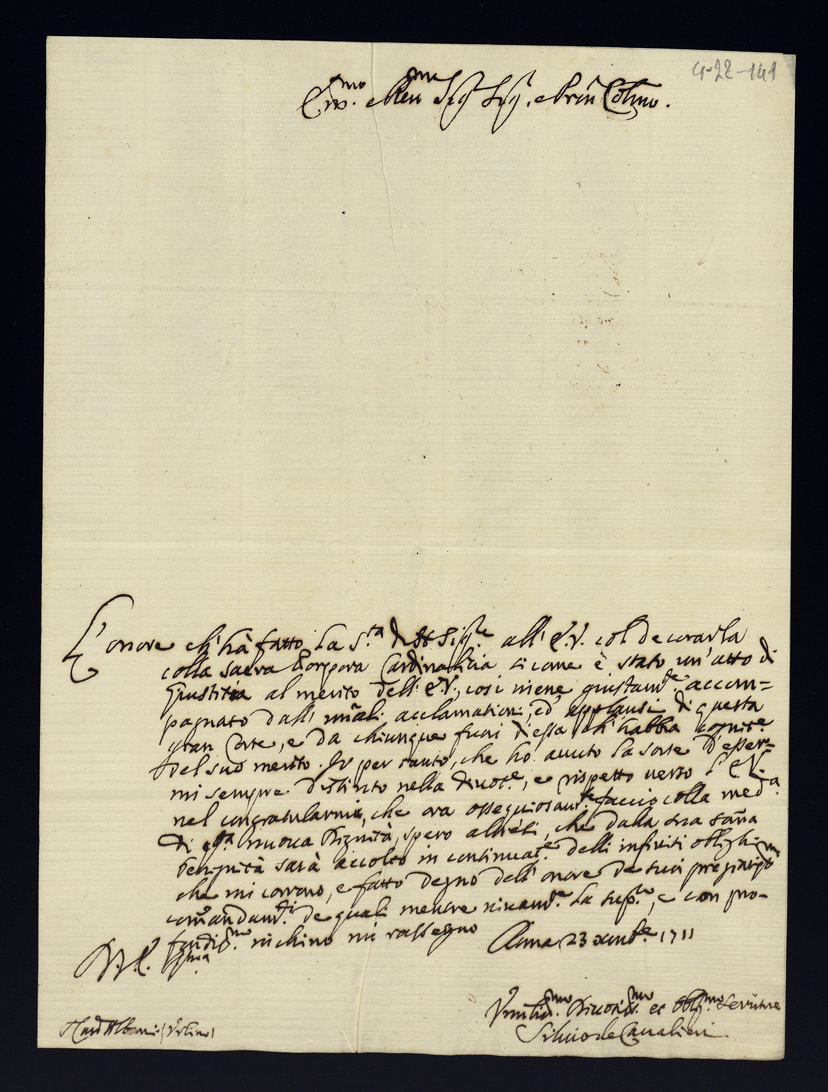 4-22-141
Em.mo e Rev.mo Sig.r Sig.r, e Pron Col.mo.
L'onore ch'hà fatto la S.tà di N. Sig.re all'E.V. col decorarla
colla sacra Porpora Cardinalizia si come è stato un'atto di
Giustitia al merito dell'E.V., così viene giustam.te accom=
pagnato dall' uñali acclamationi, ed' applausi di questa
gran Corte, e da chiunque fuori d'essa ch'habbia cognit.e
del suo merito. Io per tanto, che ho avuto la sorte d'esser=
mi sempre distinto nella divot.e, e rispetto verso l'E.V.
nel congratularmi, che ora ossequiosam.te faccio colla med.a
di q.sta nuova Dignità, spero altresì, che dalla sua somma
benignità sarà accolto in continuat.e delli infiniti oblighi
che mi corrono, e fatto degno dell'onore de suoi pregiatis.mi
comandam.ti de quali mentre vivam.te la sup.co, e con pro=
fondis.mo inchino mi rassegno
D.V.E. Roma 23 Xmb.e 1711
Umilis.mo Divotis.mo et Obl.mo Servitore
Silvio de Cavalieri
S. Card. Albani (Urbino)